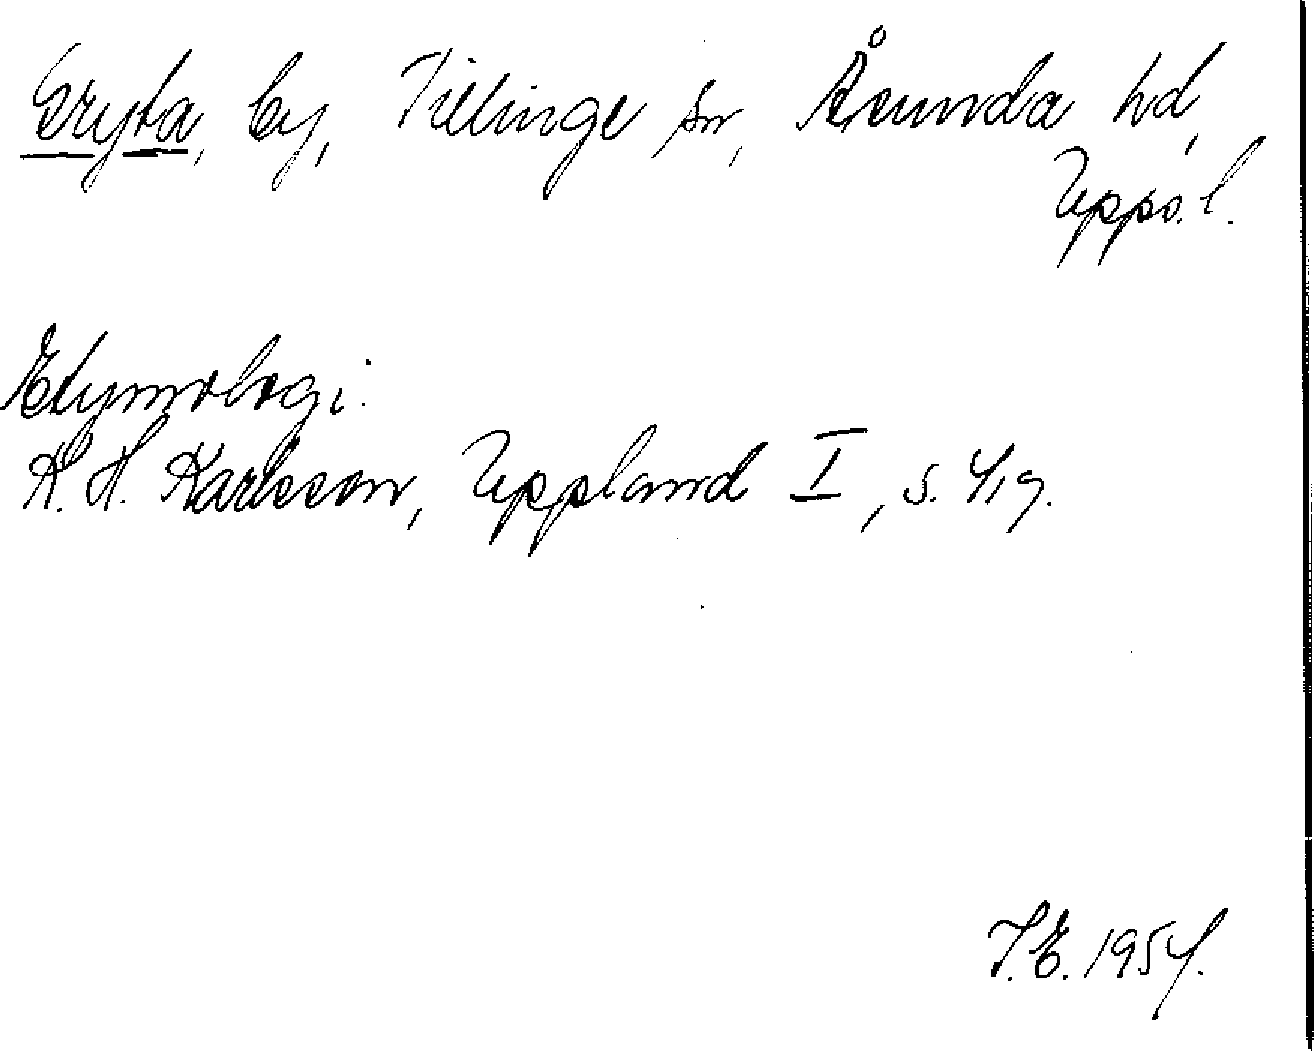 Gryta, by, Tillinge sn, Åsunda hd,
Upps. l.
Etymologi:
K. H. Karlsson, Uppland I, s. 419.
T.E. 1954.